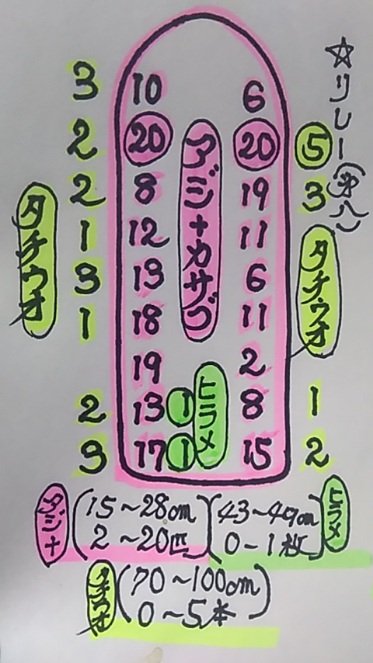 ☆リレー(オス)
3 10 6
2 20 アジ+カサゴ 20 5
2 8 19 3
タチウオ 1 12 11 タチウオ
3 13 6
1 18 11
19 2
2 13 1 ヒラメ 8 1
3 17 1 15 2
アジ+ (15~28cm 2~20匹)
(43~49cm 0-1枚) ヒラメ
タチウオ (70~100cm 0~5本)